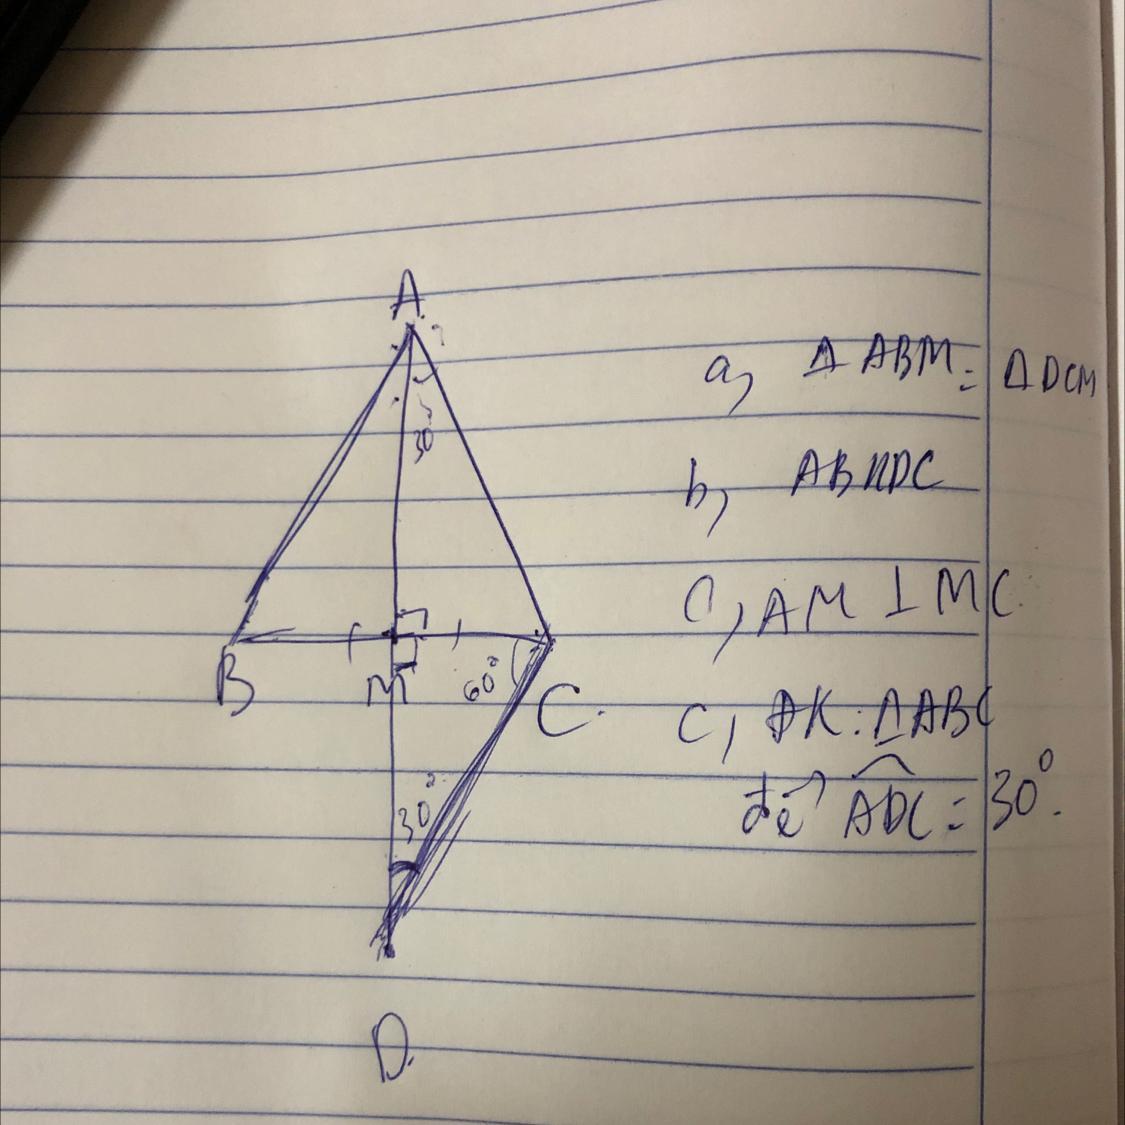 A
30°
B
M
60°
C
30°
D
a, Δ ABM = Δ DCM
b, AB // DC
C, AM ⊥ MC
C, ĐK: Δ ABC
để ADC = 30°.